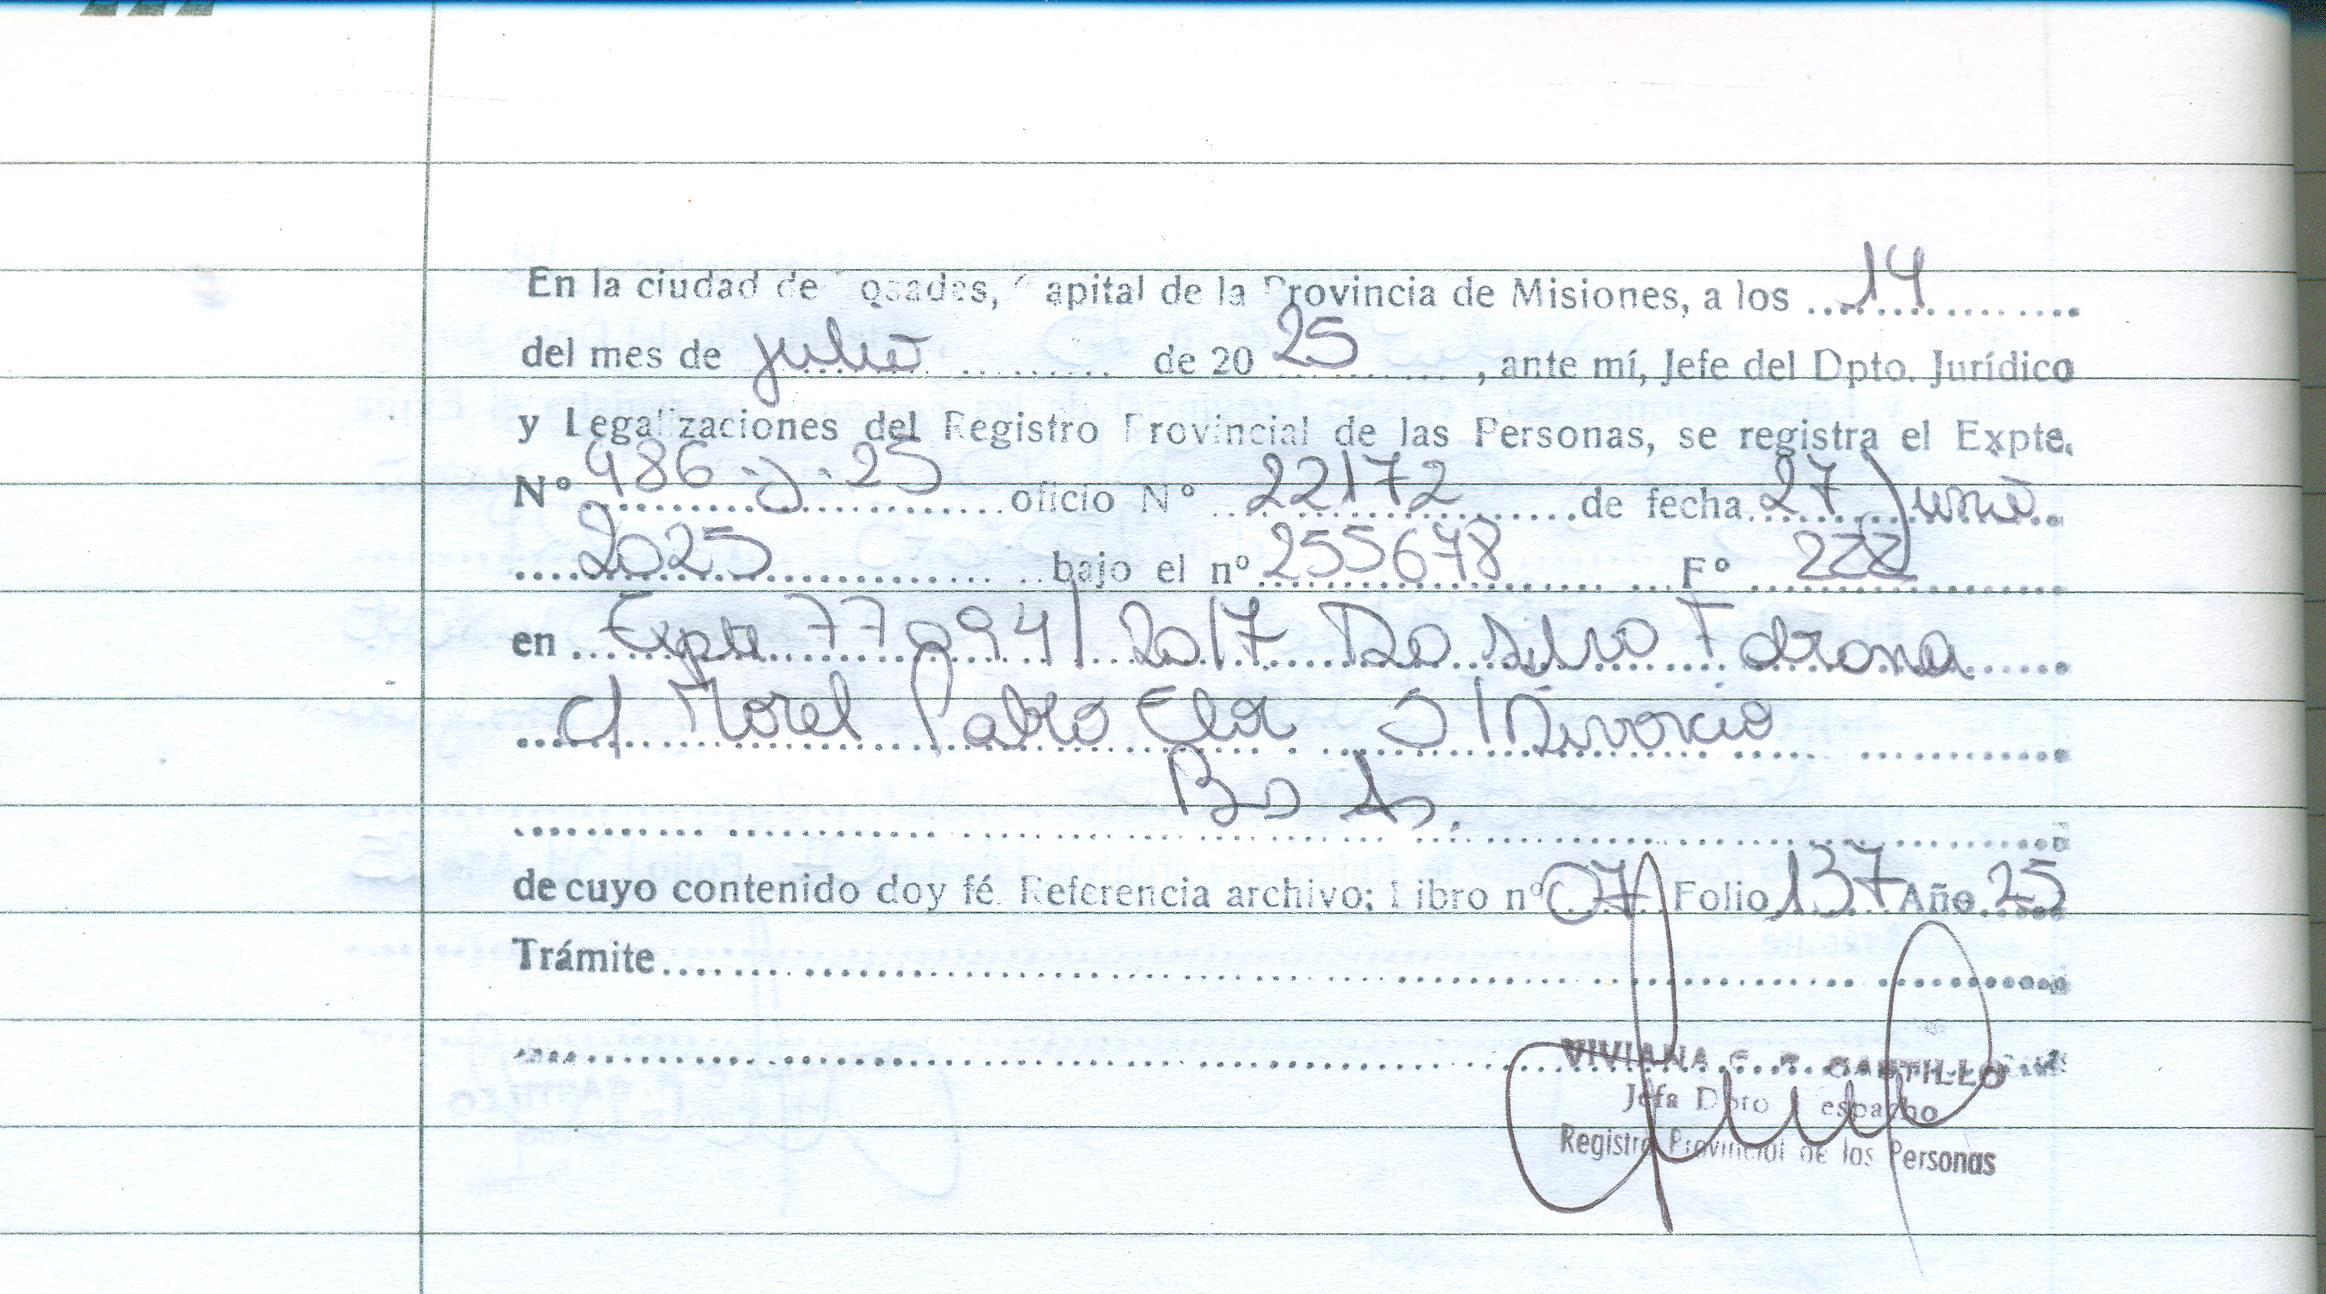 En la ciudad de Posadas, Capital de la Provincia de Misiones, a los 14
del mes de julio de 20 25, ante mí, Jefe del Dpto. Jurídico
y Legalizaciones del Registro Provincial de las Personas, se registra el Expte.
Nº 486-J-25 oficio Nº 22172 de fecha 27 Junio
2025 bajo el nº 255678 Fº 222
en Expte 77094/2017 Da Silva
c/ Morel Pablo S/ Divorcio
Bs As.
de cuyo contenido doy fé. Referencia archivo; Libro nº 07 Folio 137 Año 25
Trámite
VIVIANA CASTILLO
Jefa Dpto Despacho
Registro Provincial de las Personas